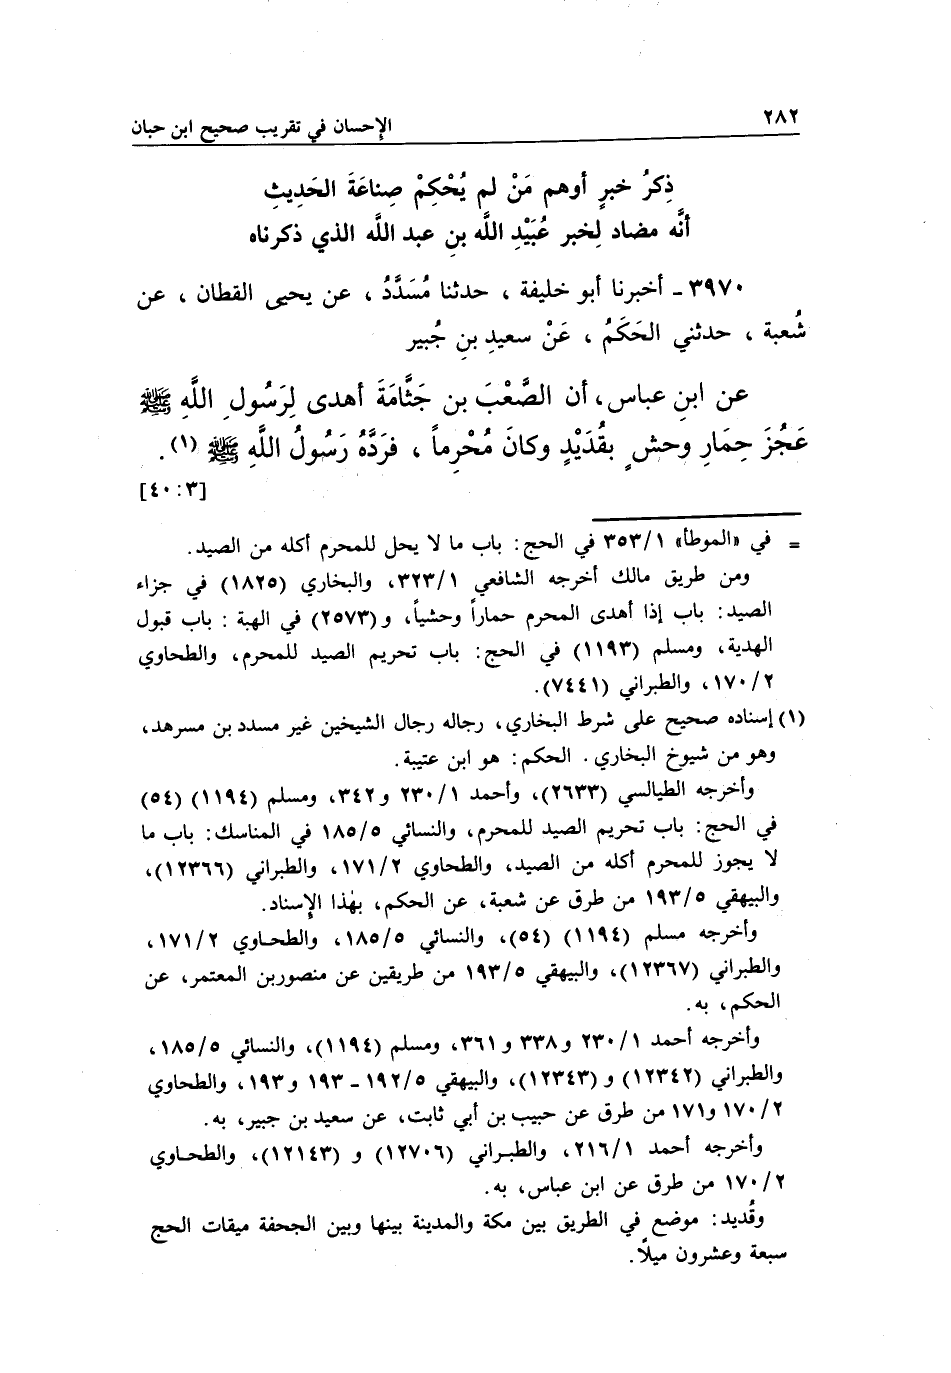 ٢٨٢
الإحسان في تقريب صحيح ابن حبان
ذِكرُ خبرٍ أوهم مَنْ لم يُحْكِمْ صِناعَةَ الحَدِيثِ
أنَّه مضاد لِخبر عُبَيْدِ اللَّه بنِ عبد اللَّه الذي ذكرناه
٣٩٧٠ ـ أخبرنا أبو خليفة ، حدثنا مُسَدَّدُ ، عن يحيى القطان ، عن
شُعبة ، حدثني الحَكَمُ ، عَنْ سعيدِ بنِ جُبير
عن ابنِ عباس، أن الصَّعْبَ بن جَثَّامَةَ أهدى لِرَسُولِ اللَّهِ ﷺ
عَجُزَ حِمَارِ وحش ٍ بقُدَيْدٍ وكانَ مُحْرِماً ، فرَدَّهُ رَسُولُ اللَّهِ ﷺ (١) .
[٣ : ٤٠]
= في «الموطأ» ٣٥٣/١ في الحج : باب ما لا يحل للمحرم أكله من الصيد.
ومن طريق مالك أخرجه الشافعي ٣٢٣/١، والبخاري (١٨٢٥) في جزاء
الصيد : باب إذا أهدى المحرم حماراً وحشياً، و(٢٥٧٣) في الهبة : باب قبول
الهدية، ومسلم (١١٩٣) في الحج : باب تحريم الصيد للمحرم، والطحاوي
١٧٠/٢، والطبراني (٧٤٤١).
(١) إسناده صحيح على شرط البخاري، رجاله رجال الشيخين غير مسدد بن مسرهد،
وهو من شيوخ البخاري . الحكم : هو ابن عتيبة.
وأخرجه الطيالسي (٢٦٣٣)، وأحمد ٢٣٠/١ و٣٤٢، ومسلم (١١٩٤) (٥٤)
في الحج : باب تحريم الصيد للمحرم، والنسائي ١٨٥/٥ في المناسك : باب ما
لا يجوز للمحرم أكله من الصيد، والطحاوي ١٧١/٢، والطبراني (١٢٣٦٦)،
والبيهقي ١٩٣/٥ من طرق عن شعبة، عن الحكم، بهٰذا الإسناد.
وأخرجه مسلم (١١٩٤) (٥٤)، والنسائي ١٨٥/٥، والطحاوي ١٧١/٢،
والطبراني (١٢٣٦٧)، والبيهقي ١٩٣/٥ من طريقين عن منصوربن المعتمر، عن
الحكم، به.
وأخرجه أحمد ٢٣٠/١ و٣٣٨ و٣٦١، ومسلم (١١٩٤)، والنسائي ١٨٥/٥،
والطبراني (١٢٣٤٢) و(١٢٣٤٣)، والبيهقي ١٩٢/٥ ـ ١٩٣ و١٩٣، والطحاوي
١٧٠/٢ و١٧١ من طرق عن حبيب بن أبي ثابت، عن سعيد بن جبير، به.
وأخرجه أحمد ٢١٦/١، والطبراني (١٢٧٠٦) و (١٢١٤٣)، والطحاوي
١٧٠/٢ من طرق عن ابن عباس، به.
وقُديد : موضع في الطريق بين مكة والمدينة بينها وبين الجحفة ميقات الحج
سبعة وعشرون ميلاً.